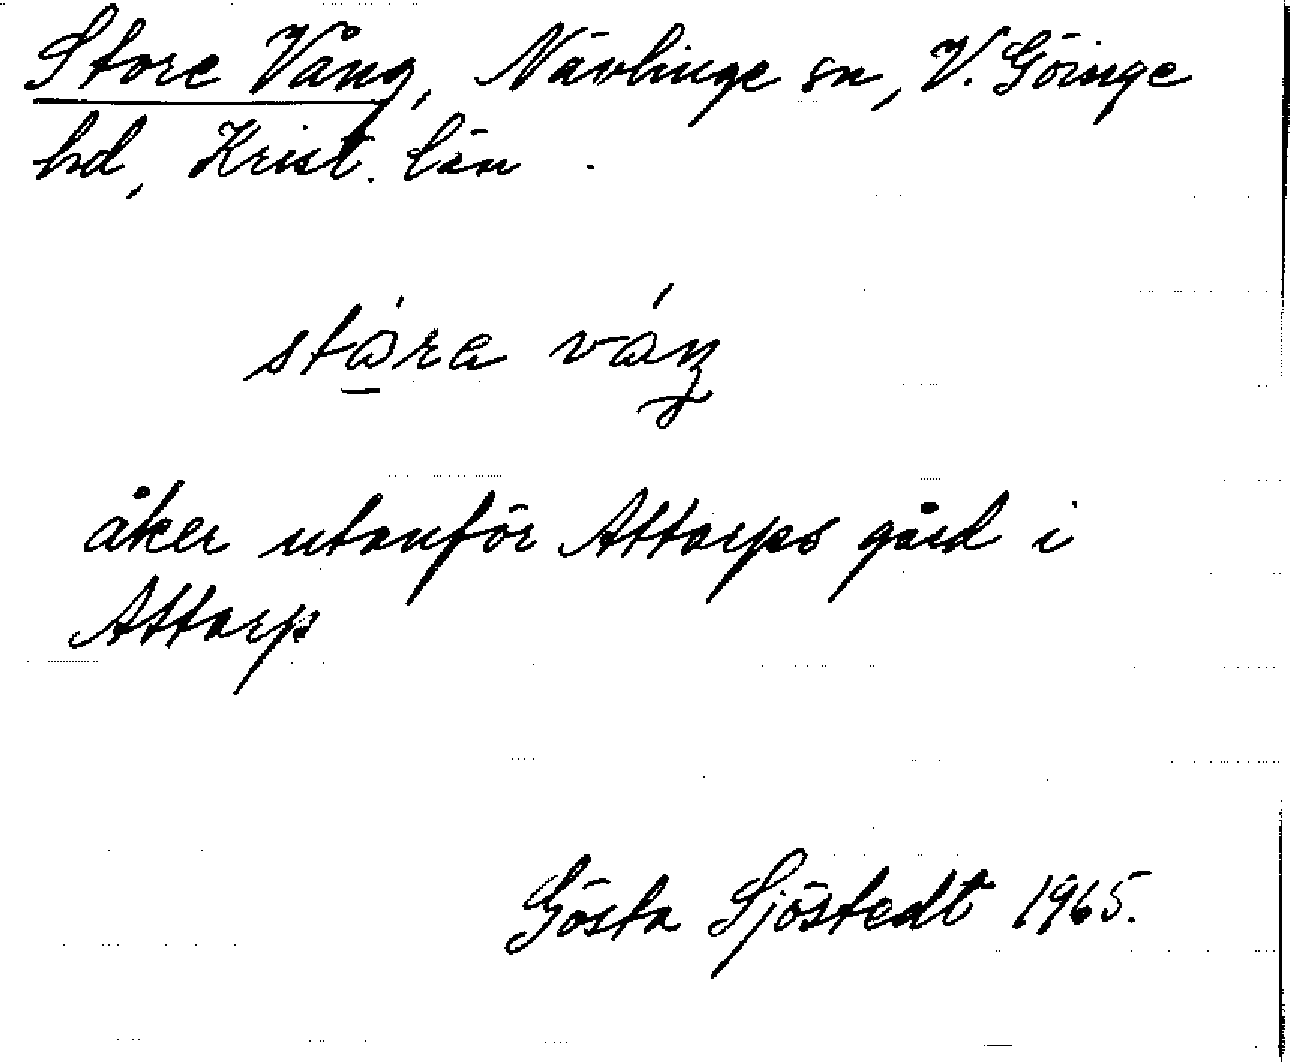 Store Vång, Nävlinge sn, V. Göinge
hd, Krist. län.
åker utanför Attarps gård i
Attarp
Gösta Sjöstedt 1965.